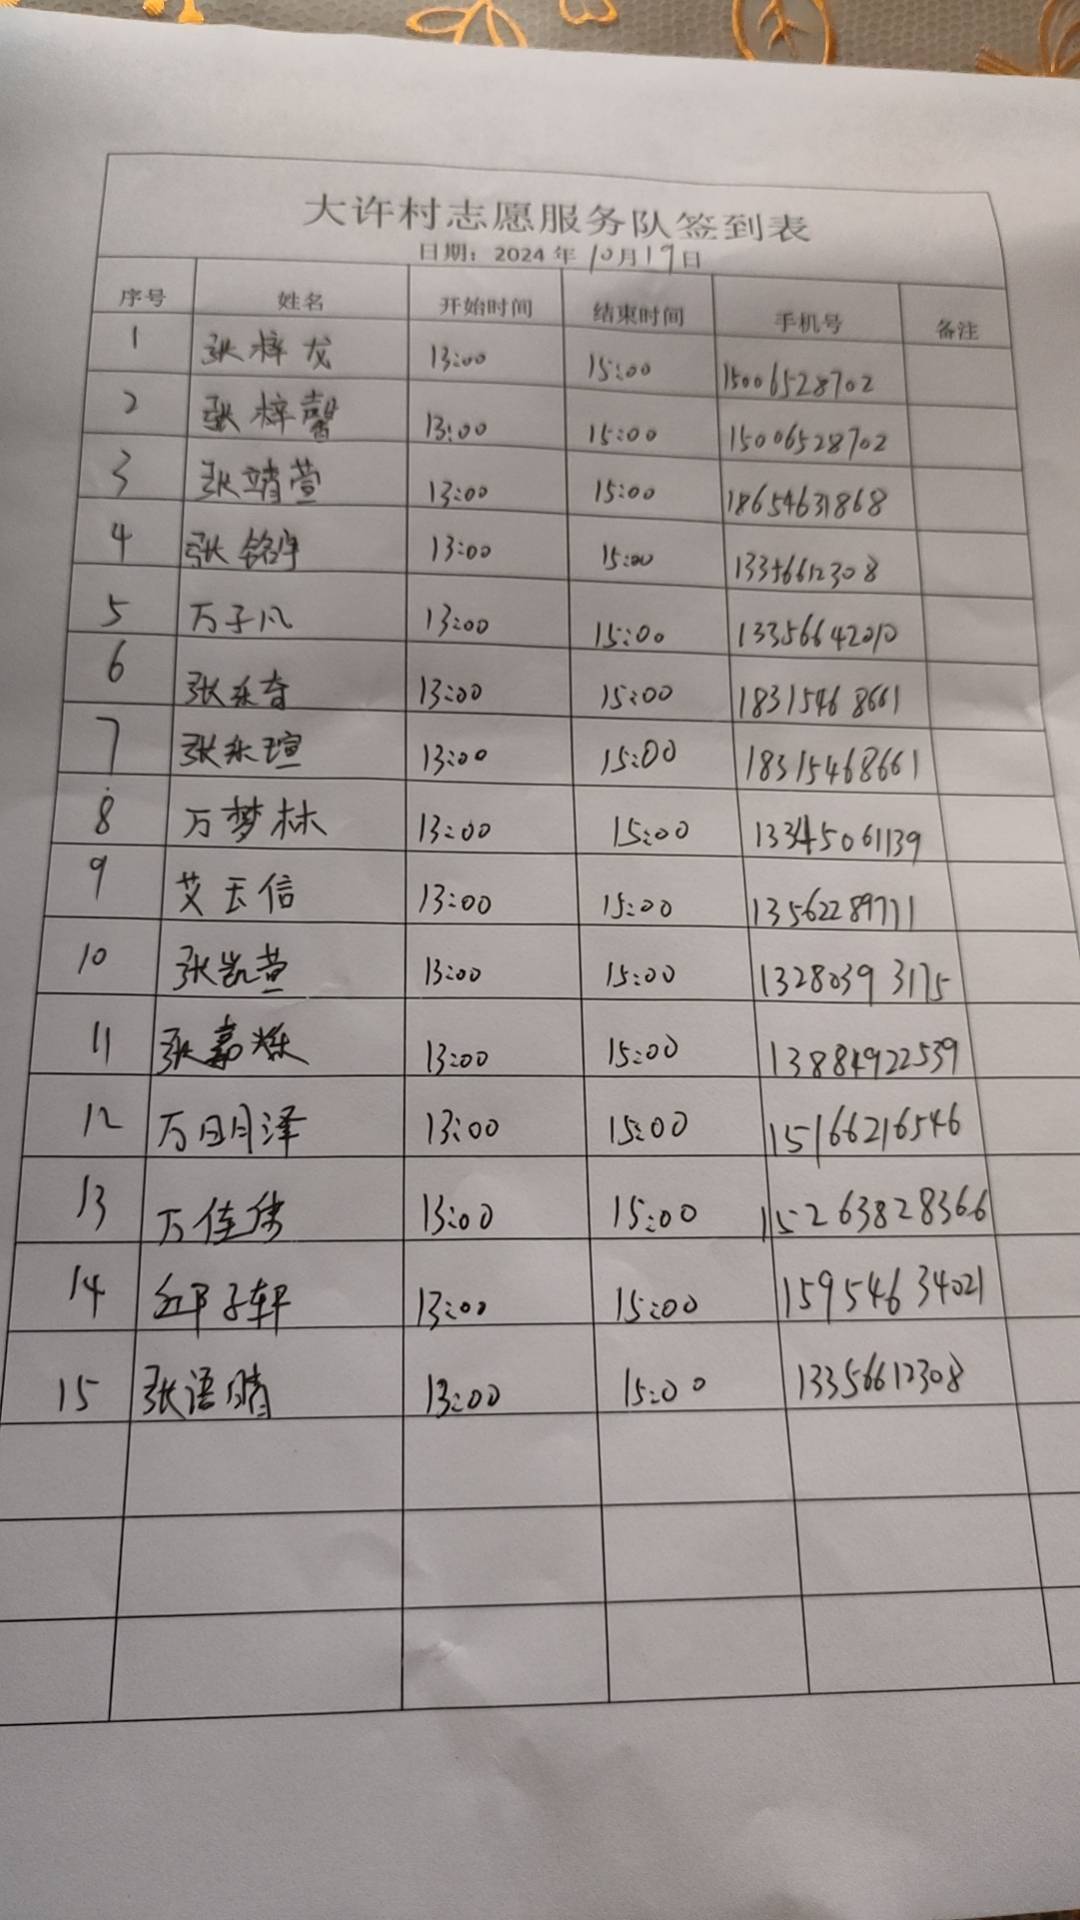 大许村志愿服务队签到表
日期：2024年10月19日
序号 姓名 开始时间 结束时间 手机号 备注
1 张梓龙 13:00 15:00 15006528702
2 张梓馨 13:00 15:00 15006528702
3 张靖萱 13:00 15:00 18654631868
4 张铭宇 13:00 15:00 13356612308
5 万子凡 13:00 15:00 13356642010
6 张乐奇 13:00 15:00 18315468661
7 张乐瑄 13:00 15:00 18315468661
8 万梦林 13:00 15:00 13345061139
9 艾玉信 13:00 15:00 13562289711
10 张凯萱 13:00 15:00 13280393175
11 张嘉烁 13:00 15:00 13884922539
12 万明泽 13:00 15:00 15166216546
13 万佳 13:00 15:00 15263828366
14 子轩 13:00 15:00 15954634021
15 张语晴 13:00 15:00 13356612308